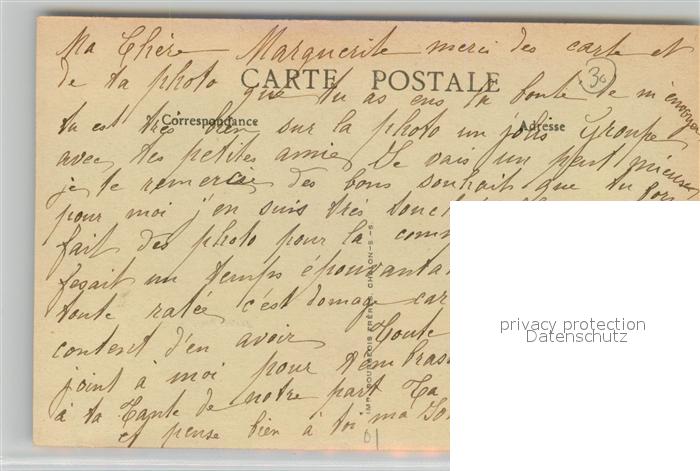 Ma Chère Marguerite merci des carte et
de ta photo que tu as eus la bonté de m'envoyer
CARTE POSTALE
30
Correspondance
Adresse
tu est très bien sur la photo un jolis groupe
avec tes petites amies Je vais un peut mieux
je te remercie des bons souhait que tu
pour moi j'en suis très
fait des photo pour la
fesait un temps
toute ratée c'est domage car
content d'en avoir Toute
joint à moi pour t'embrass
à ta Tante de notre part Ta
et pense bien à toi ma
IMP. BOURGEOIS FRÈRES, CHALON-S-S.
privacy protection
Datenschutz